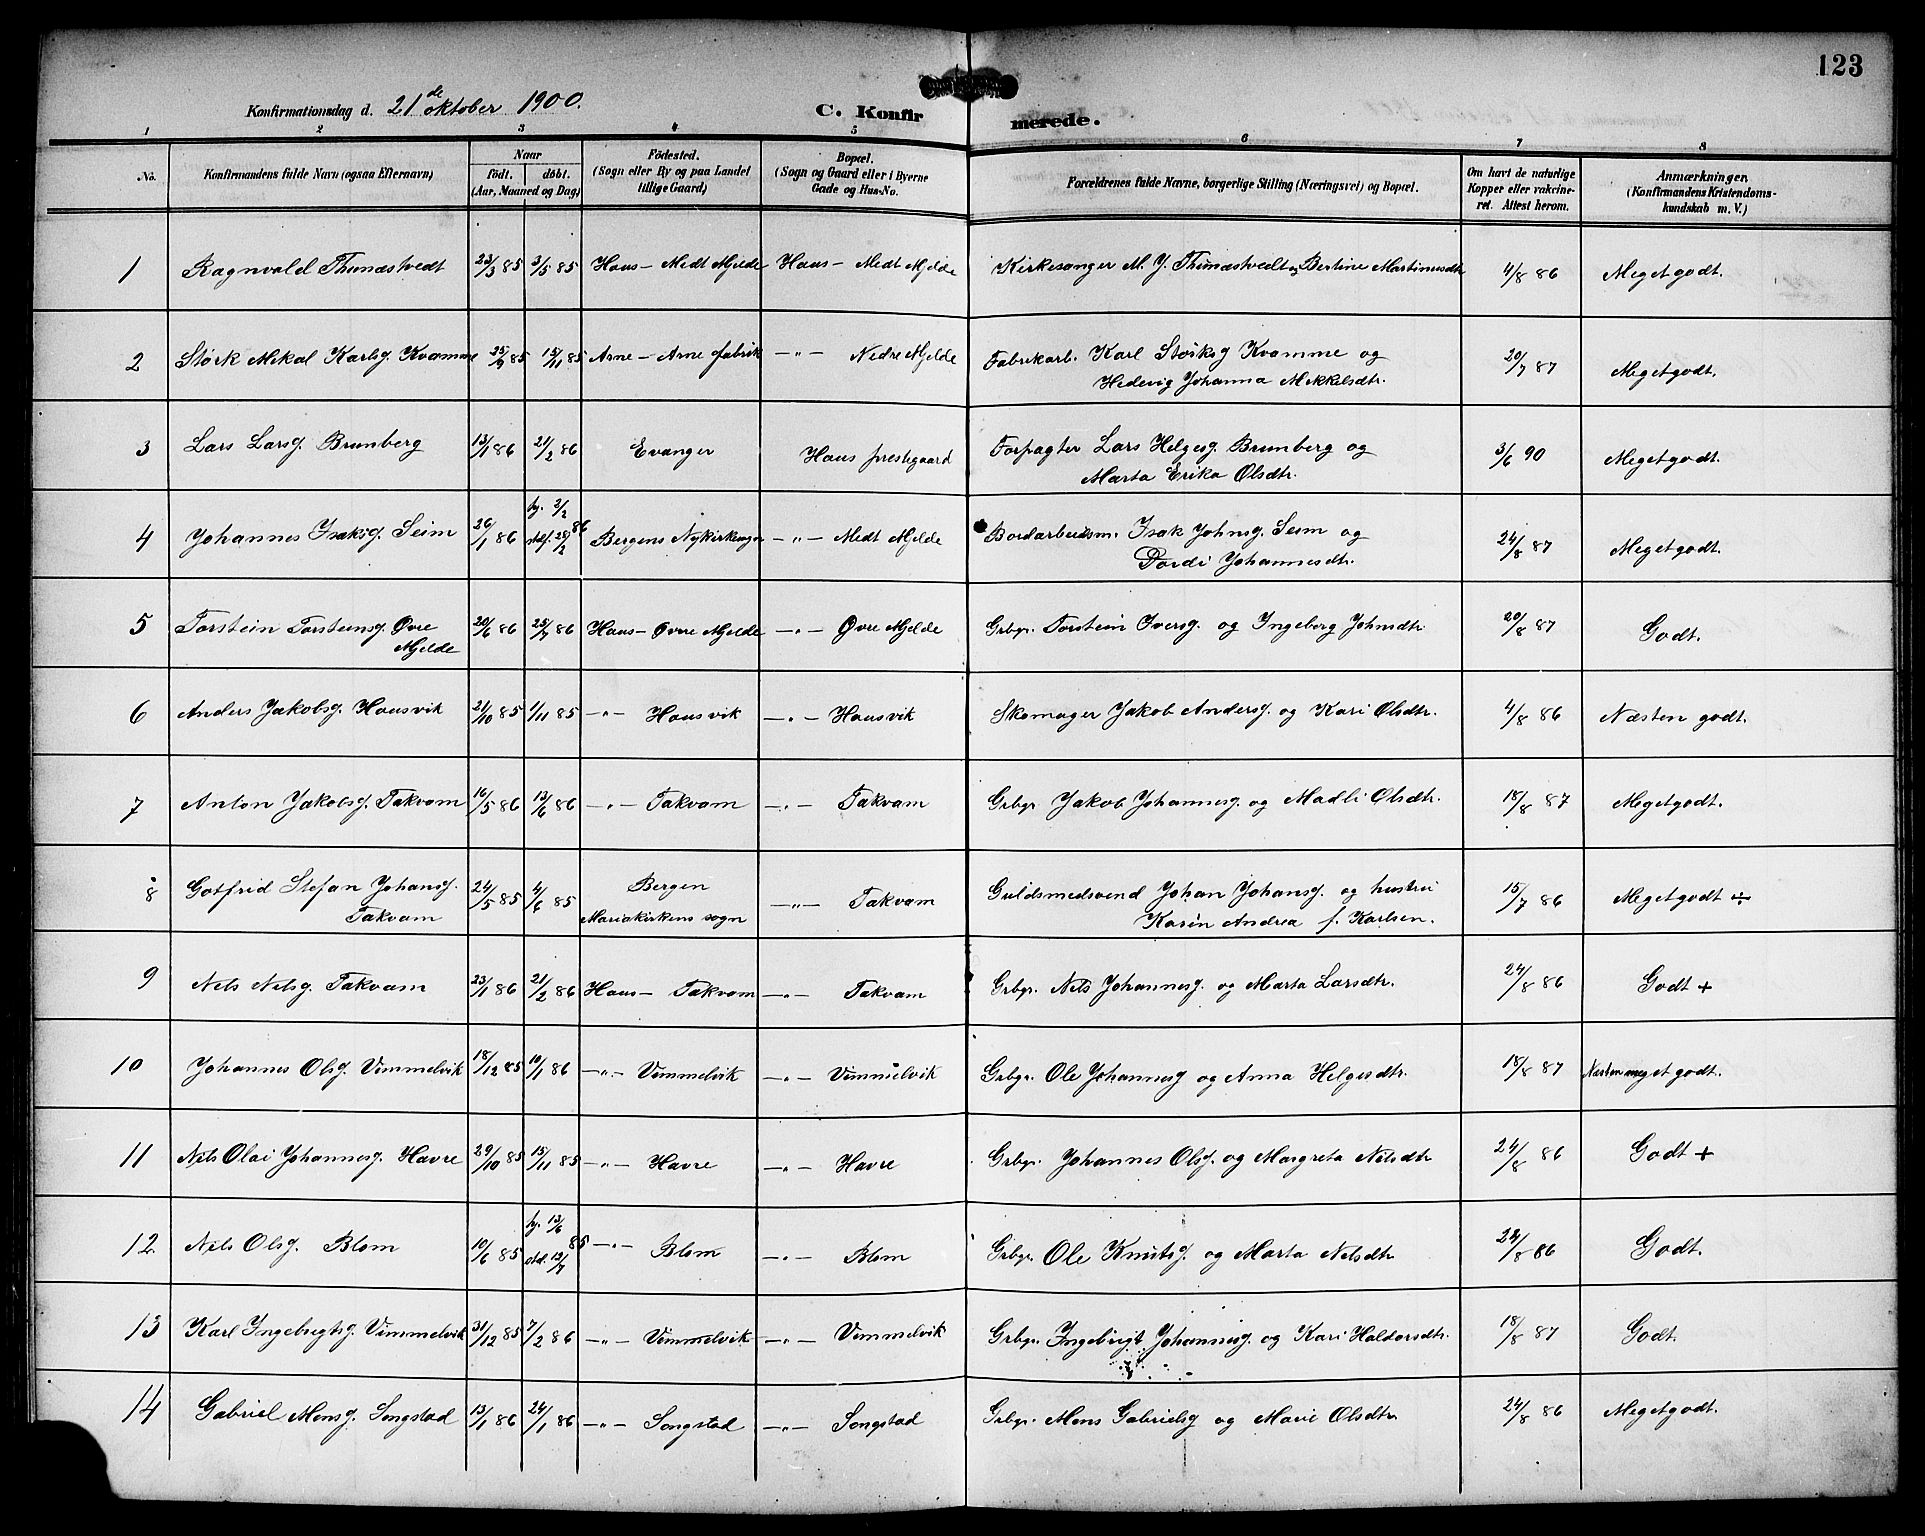 123
Konfirmationsdag d. 21de oktober 1900.
C. Konfirmerede.
1 2 3 4 5 6 7 8
No. Konfirmandens fulde Navn (ogsaa Efternavn) Naar födt. döbt. (Aar, Maaned og Dag) Födested. (Sogn eller By og paa Landet tillige Gaard) Bopæl. (Sogn og Gaard eller i Byerne Gade og Hus-No. Forældrenes fulde Navne, borgerlige Stilling (Næringsvei) og Bopæl. Om havt de naturlige Kopper eller vakcineret. Attest herom. Anmærkninger. (Konfirmandens Kristendomskundskab m. V.)
1 Ragnvald Thunæstvedt 23/3 85 3/5 85 Haus - Medt Mjelde Haus - Medt Mjelde Kirkesanger M. J. Thunæstvedt og Bertine Martinusdtr 4/8 86 Meget godt.
2 Størk Mikal Karlsg. Kvamme 25/9 85 15/11 85 Arne - Arne fabrik -"- Nedre Mjelde Fabrikarb. Karl Størksg Kvamme og
Hedevig Johanna Mikkelsdtr. 20/7 87 Meget godt.
3 Lars Larsg. Brunberg 13/1 86 21/2 86 Evanger Haus prestegaard Forpagter Lars Helgesg. Brunberg og
Marta Erika Olsdtr. 3/6 90 Meget godt.
4 Johannes Isaksg. Seim 26/1 86 hj. 2/2 86 stdf. 28/2 Bergens Nykirkesogn -"- Medt Mjelde Bordarbeidsm. Isak Johnsg. Seim og
Dordi Johannesdtr. 24/8 87 Meget godt.
5 Torstein Torsteinsg. Øvre
Mjelde 20/6 86 25/7 86 Haus - Øvre Mjelde -"- Øvre Mjelde Grbgr. Torstein Iversg. og Ingeborg Johnsdtr 20/8 87 Godt.
6 Anders Jakobsg. Hausvik 21/10 85 1/11 85 -"- Hausvik -"- Hausvik Skomager Jakob Andersg. og Kari Olsdtr. 4/8 86 Næsten godt.
7 Anton Jakobsg. Takvam 16/5 86 13/6 86 -"- Takvam -"- Takvam Grbgr Jakob Johannesg. og Madli Olsdtr. 18/8 87 Meget godt.
8 Gotfrid Stefan Johansg.
Takvam 24/5 85 4/6 85 Bergen
Mariakirkens sogn -"- Takvam Guldsmedsvend Johan Johansg. og hustru
Karin Andrea f. Karlsen. 15/7 86 Meget godt ÷
9 Nels Nelsg. Takvam 23/1 86 21/2 86 Haus - Takvam -"- Takvam Grbgr. Nels Johannesg. og Marta Larsdtr. 24/8 86 Godt +
10 Johannes Olsg. Vimmelvik 18/12 85 10/1 86 -"- Vimmelvik -"- Vimmelvik Grbgr. Ole Johannesg og Anna Helgesdtr. 18/8 87 Næsten meget godt.
11 Nels Olai Johannesg. Havre 29/10 85 15/11 85 -"- Havre -"- Havre Grbgr. Johannes Olsg. og Margreta Nelsdtr 24/8 86 Godt +
12 Nels Olsg. Blom 10/6 85 hj. 13/6 85 std. 12/7 -"- Blom -"- Blom Grbgr. Ole Knutsg. og Marta Nelsdtr 24/8 86 Godt.
13 Karl Ingebrigtsg. Vimmelvik 31/12 85 7/2 86 -"- Vimmelvik -"- Vimmelvik Grbgr. Ingebrigt Johannesg. og Kari Haldorsdtr. 18/8 87 Godt.
14 Gabriel Monsg. Songstad 13/1 86 24/1 86 -"- Songstad -"- Songstad Grbgr. Mons Gabrielsg og Marie Olsdtr 24/8 86 Meget godt.